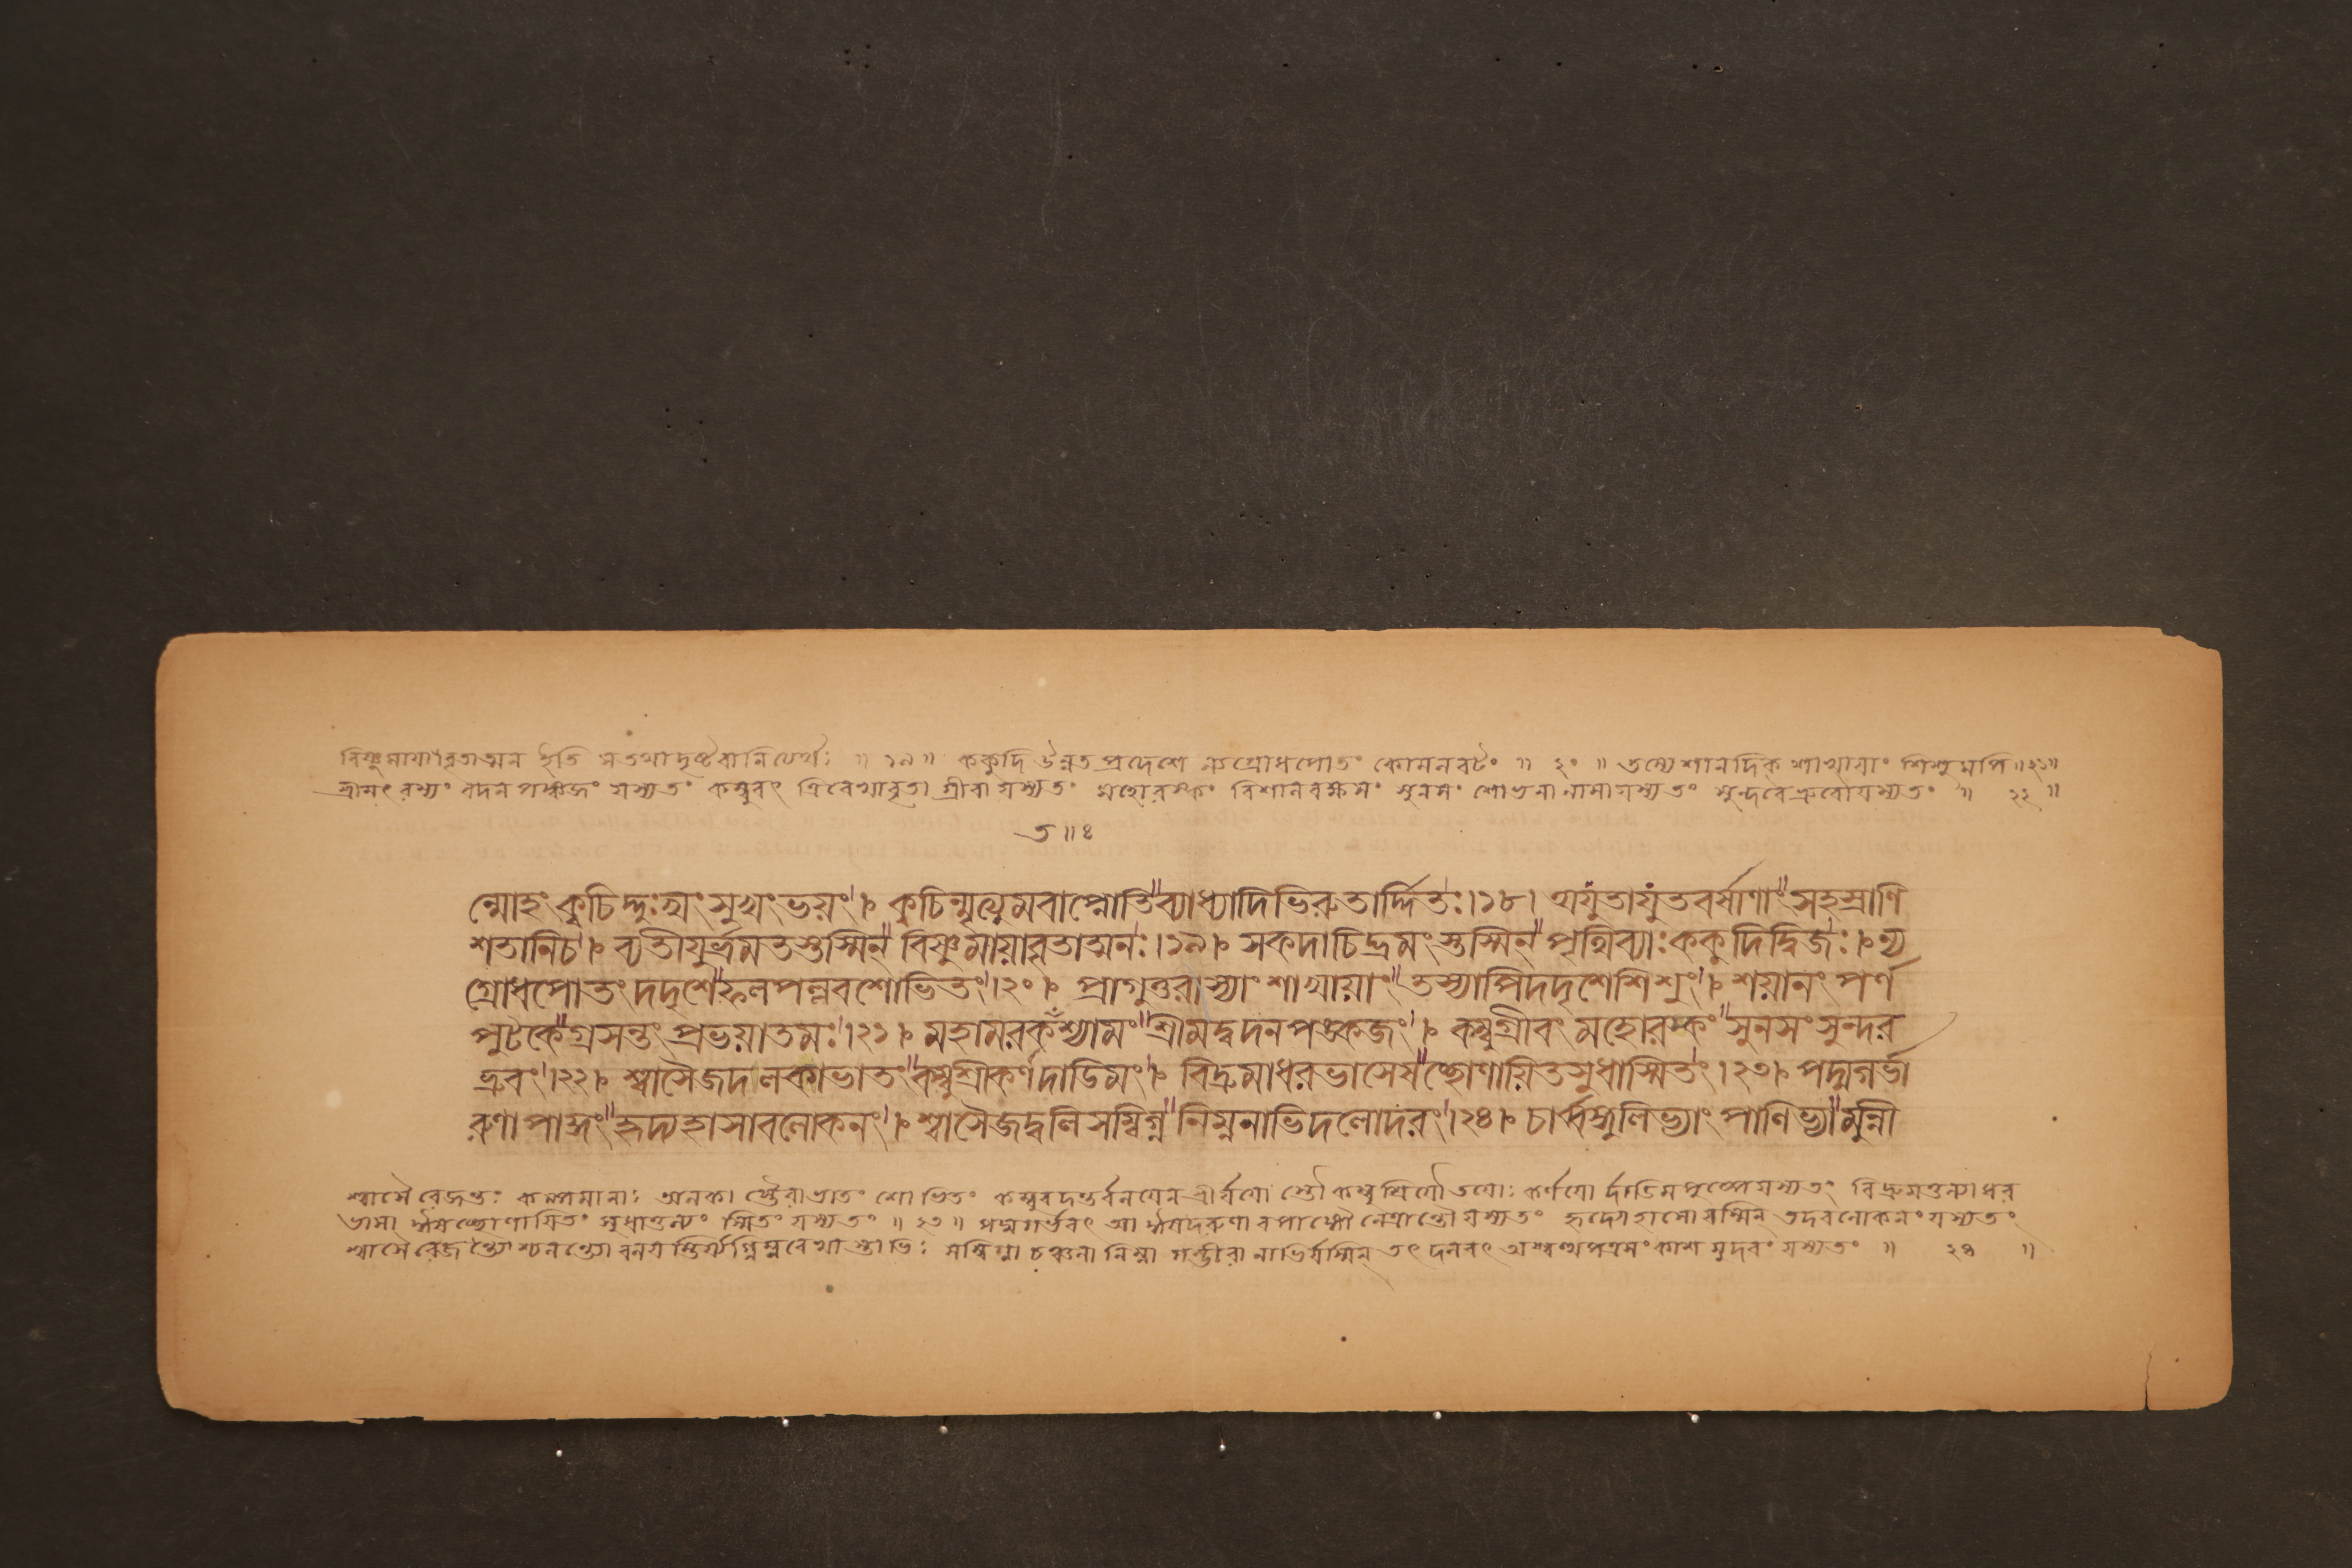 বিষ্ণুমায়াবৃতাত্মন ইতি স তথা দৃষ্টবানিত্যর্থঃ ॥ ১৯ ॥ ককুদি উন্নতপ্রদেশে ন্যগ্রোধপোতং কোমলবটং ॥ ২০ ॥ তস্যেশানদিক শাখায়াং শিশুমপি ॥২১॥
শ্রীমৎ রম্যং বদনপঙ্কজং যস্য তং কম্বুবৎ ত্রিরেখাবৃতা গ্রীবা যস্য তং মহোরস্কং বিশালবক্ষসং সুনসং শোভনা নাসা যস্য তং সুন্দরে ভ্রুবৌ যস্য তং ॥ ২২ ॥
ত॥৪
ন্মোহং কুচিদ্দুঃখং সুখং ভয়ং। কুচিন্মৃত্যুমবাপ্নোতি ব্যাধ্যাদিভিরুতার্দ্দিতঃ।১৮। অযুতাযুতবর্ষাণাং সহস্রাণি
শতানিচ। ব্যতীয়ুর্ভ্রমতস্তস্মিন্ বিষ্ণুমায়াবৃতাত্মনঃ।১৯। সকদাচিদ্ভ্রমংস্তস্মিন্ পৃথিব্যাঃ ককুদিদ্বিজঃ। ন্য
গ্রোধপোতং দদৃশে ফলপল্লবশোভিতং।২০। প্রাগুত্তরাস্যাং শাখায়াং তস্যাপিদদৃশেশিশুং। শয়ানং পর্ণ
পুটকে গ্রসন্তং প্রভয়াতমঃ।২১। মহামরকঁশ্যামং শ্রীমদ্বদনপঙ্কজং। কম্বুগ্রীবং মহোরস্কং সুনসং সুন্দর
ভ্রুবং।২২। শ্বাসৈজদলকাভাতং কম্বুশ্রীকর্ণদাডিমং। বিদ্রুমাধরভাসেষ চ্ছোণায়িতসুধাস্মিতং।২৩। পদ্মগর্ভা
রুণাপাঙ্গং হৃদ্যহাসাবলোকনং। শ্বাসৈজদ্বলিসম্বিগ্ন নিম্ননাভিদলোদরং।২৪। চার্ব্বঙ্গুলিভ্যাং পাণিভ্যা মুন্নী
শ্বাসৈরেজন্তঃ কম্পমানাঃ অলকা স্তৈরাভাতং শোভিতং কম্বুবদন্তর্বলয়েন শ্রীর্যয়ো স্তৌ কম্বুশ্রিয়ৌ তয়োঃ কর্ণয়ো র্দাডিমপুষ্পে যস্য তং বিদ্রুমতুল্যাধর
ভাসা ঈষচ্ছোণায়িতং সুধাতুল্যং স্মিতং যস্য তং ॥ ২৩ ॥ পদ্মগর্ভবৎ আ ঈষদরুণাবপাঙ্গৌ নেত্রান্তৌ যস্য তং হৃদ্যোহাসো যস্মিন্ তদবলোকনং যস্য তং
শ্বাসৈরেজন্ত্যশ্চলন্ত্যো বলয় স্তির্য্যগ্নিম্নরেখাস্তাভিঃ সম্বিগ্না চঞ্চলা নিম্না গম্ভীরা নাভির্যস্মিন্ তৎ দলবৎ অশ্বত্থপত্রসংকাশমুদরং যস্য তং ॥ ২৪ ॥